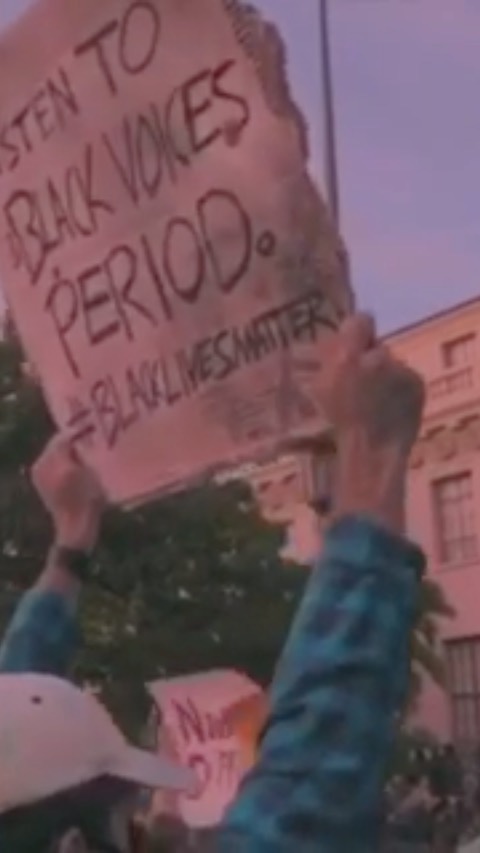 ISTEN TO
BLACK VOICES
PERIOD.
#BLACKLIVESMATTER